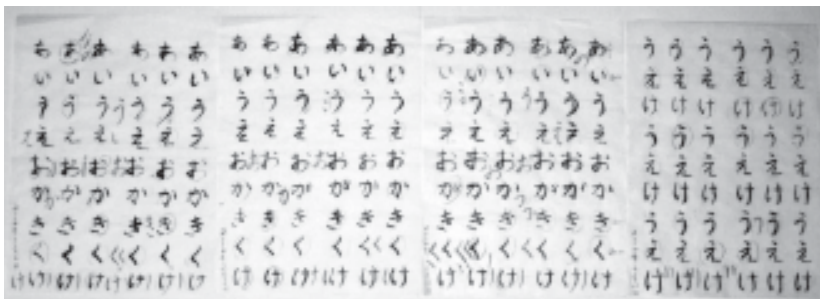 あ あ あ あ あ あ
い い い い い い
う う う う う う
え え え え え え
お お お お お お
か か か か か か
き き き き き き
く く く く く く
け け け け け け
あ あ あ あ あ あ
い い い い い い
う う う う う う
え え え え え え
お お お お お お
か か か か か か
き き き き き き
く く く く く く
け け け け け け
あ あ あ あ あ あ
い い い い い い
う う う う う う
え え え え え え
お お お お お お
か か か か か か
き き き き き き
く く く く く く
け け け け け け
う う う う う う
え え え え え え
け け け け け け
う う う う う う
え え え え え え
け け け け け け
う う う う う う
え え え え え え
け け け け け け